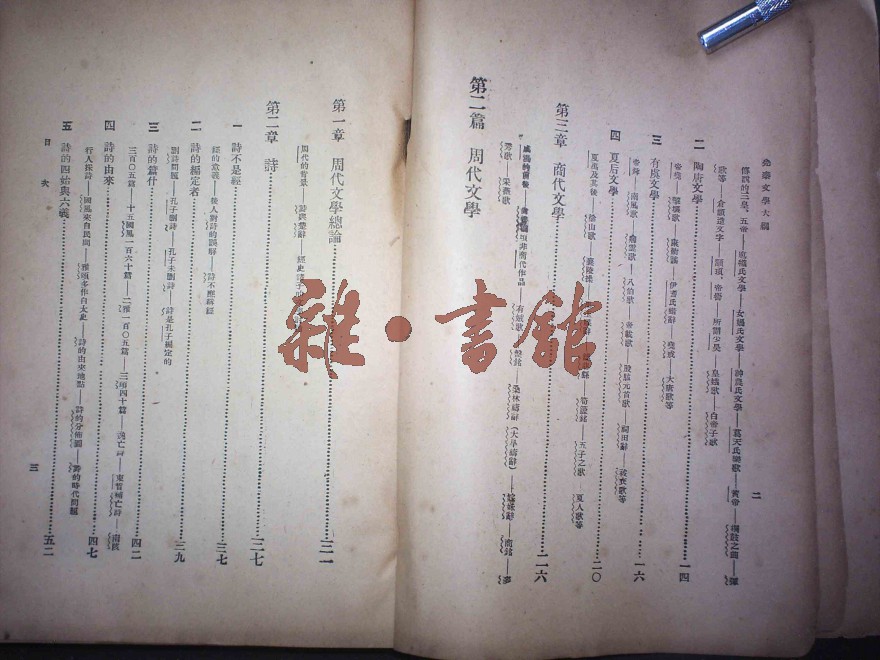 先秦文學大綱
二
傳說的三皇、五帝——庖犧氏文學——女媧氏文學——神農氏文學——葛天氏樂歌——黃帝——彈
歌等——倉頡造文字——顓頊、帝嚳——所謂少昊——皇娥歌——白帝子歌
二 陶唐文學 一四
帝堯——擊壤歌——康衢謠——伊耆氏蜡辭——堯戒——大唐歌等
三 有虞文學 一六
帝舜——南風歌——八伯歌——帝載歌——股肱元首歌——祠田辭
四 夏后文學 二〇
夏禹及其後——塗山歌——襄陵操——五子之歌——夏人歌等
第三章 商代文學 二六
商頌非商代作品——有娀歌——盤銘——桑林禱辭(大旱禱辭)——商銘——麥
秀歌——采薇歌
第二篇 周代文學
第一章 周代文學總論 三一
周代的背景——詩與楚辭
第二章 詩 三七
一 詩不是經 三七
經的意義——後人對詩的誤解——詩不應稱經
二 詩的編定者 三九
刪詩問題——孔子刪詩——孔子未刪詩——詩是孔子編定的
三 詩的篇什 四二
三百〇五篇——十五國風一百六十篇——二雅一百〇五篇——三頌四十篇——逸亡詩——束晳補亡詩——南陔
四 詩的由來 四七
行人採詩——國風來自民間——雅頌多作自太史——詩的由來地點——詩的分佈圖——詩的時代問題
五 詩的四始與六義 五二
目次
三
雜·書館